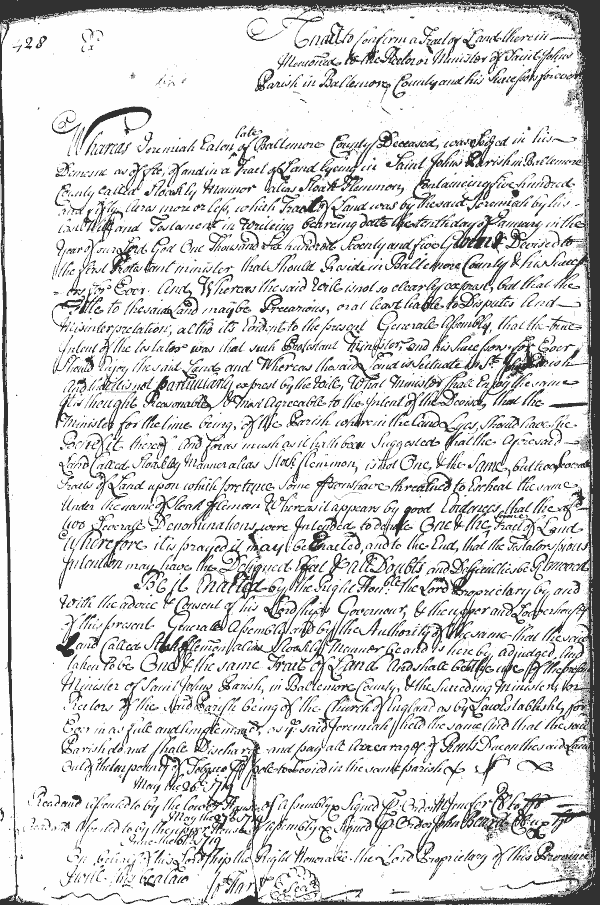 428
An Act to Confirm a Tract of Land therein
Mentioned to the Rector or Minister of Saint Johns
Parish in Baltemore County and his Successors forever
Whereas Jeremiah Eaton late of Baltemore County Deceased, was Seised in his
Demesne as of fee, of and in a Tract of Land lyeing in Saint Johns Parish in Baltemore
County called Stoakly Mannor alias Stoak Flemmon, Containing five hundred
and fifty Acres more or less, which Tract of Land was by the said Jeremiah by his
last Will and Testament in Writeing bearing date the tenth day of January in the
Year of our Lord God One Thousand Six hundred Seventy and five Devised to
the first Protestant minister, that Should Reside in Baltemore County & his Succes
-sors for Ever. And Whereas the said Wile is not so clearly exprest, but that the
Title to the said Land may be Precarious, or at least liable to Disputes And
Misinterpretation, altho its Evident to the present Generall Assembly, that the true
Intent of the testator was that such Protestant Minister and his Successors for Ever
Should enjoy the said Land, and Whereas the said Land is Scituate in St Johns Parish
And that it is not particularly exprest by the Wile, What Minister shall Enjoy the same
it is thought Reasonable & most Agreeable to the Intent of the Devisor, that the
Minister for the time being, of the Parish wherein the Land Lyes, Should have the
benefit thereof And forasmuch as it hath been Suggested that the Aforesaid
Land Called Stoakly Mannor alias Stoak flemmon, is not One & the Same, but two Severall
Tracts of Land upon which pretence Some persons have threatned to Escheat the same
Under the name of Stoak flemon Whereas it appears by good Evidences, that the sd
two Severale Denominations were Intended to denote One & the same Tract of Land
Wherefore it is prayed it may be Enacted, and to the End, that the Testators pious
Intention may have the Designed Effect & all Doubts and Difficulties be Removed
Be it Enacted by the Right Honble the Lord Proprietary by and
With the advice & Consent of his Lordships Governour, & the upper and Lower houses
of this present Generall Assembly and by the Authority of the same that the said
Land Called Stoak flemon alias Stoakly Mannor be and is hereby adjudged and
taken to be One & the same Tract of Land And shall be to the use of the present
Minister of Saint Johns Parish, in Baltemore County, & the Succeeding Ministers, or
Rectors of the said Parish being of the Church of England as by Law Establisht, for
Ever in as full and simple manner, as ye said Jeremiah held the same And that the said
Parish do and shall Discharge and pay all Arrearages of Rents Due on the said Land
Out of the Tobacco to be raised in the same parish
May the 26th 1719
Read and assented to by the lower House of Assembly & Signed p Order
May the 27th 1719
Read & Assented to by the upper House of Assembly & Signed p Order John Beard
June the 6th 1719
On behalf of his Lordship the Right Honorable the Lord Proprietary of this Province
I will this be a Law
Jo Hart
Seale